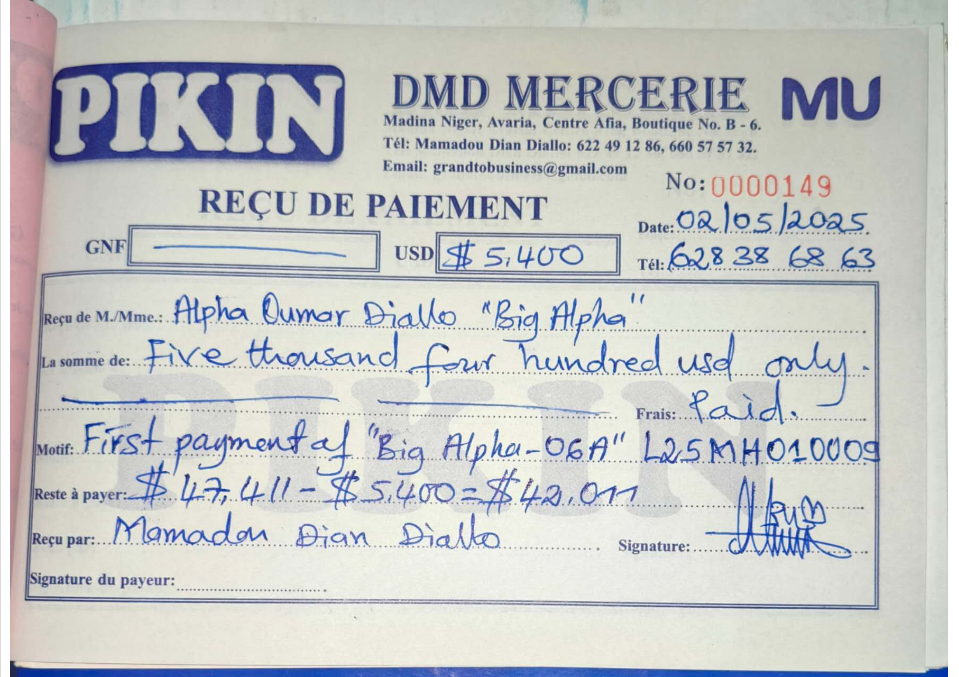 PIKIN
DMD MERCERIE
MU
Madina Niger, Avaria, Centre Afia, Boutique No. B - 6.
Tél: Mamadou Dian Diallo: 622 49 12 86, 660 57 57 32.
Email: grandtobusiness@gmail.com
No: 0000149
REÇU DE PAIEMENT
Date: 02/05/2025
GNF
USD $ 5,400
Tél: 628 38 68 63
Reçu de M./Mme.: Alpha Oumar Diallo "Big Alpha"
La somme de: Five thousand four hundred usd only.
Frais: Paid.
Motif: First payment of "Big Alpha-06A" L25MH010009
Reste à payer: $ 47,411 - $ 5,400 = $ 42,011
Reçu par: Mamadou Dian Diallo
Signature:
Signature du payeur:
PIKIN